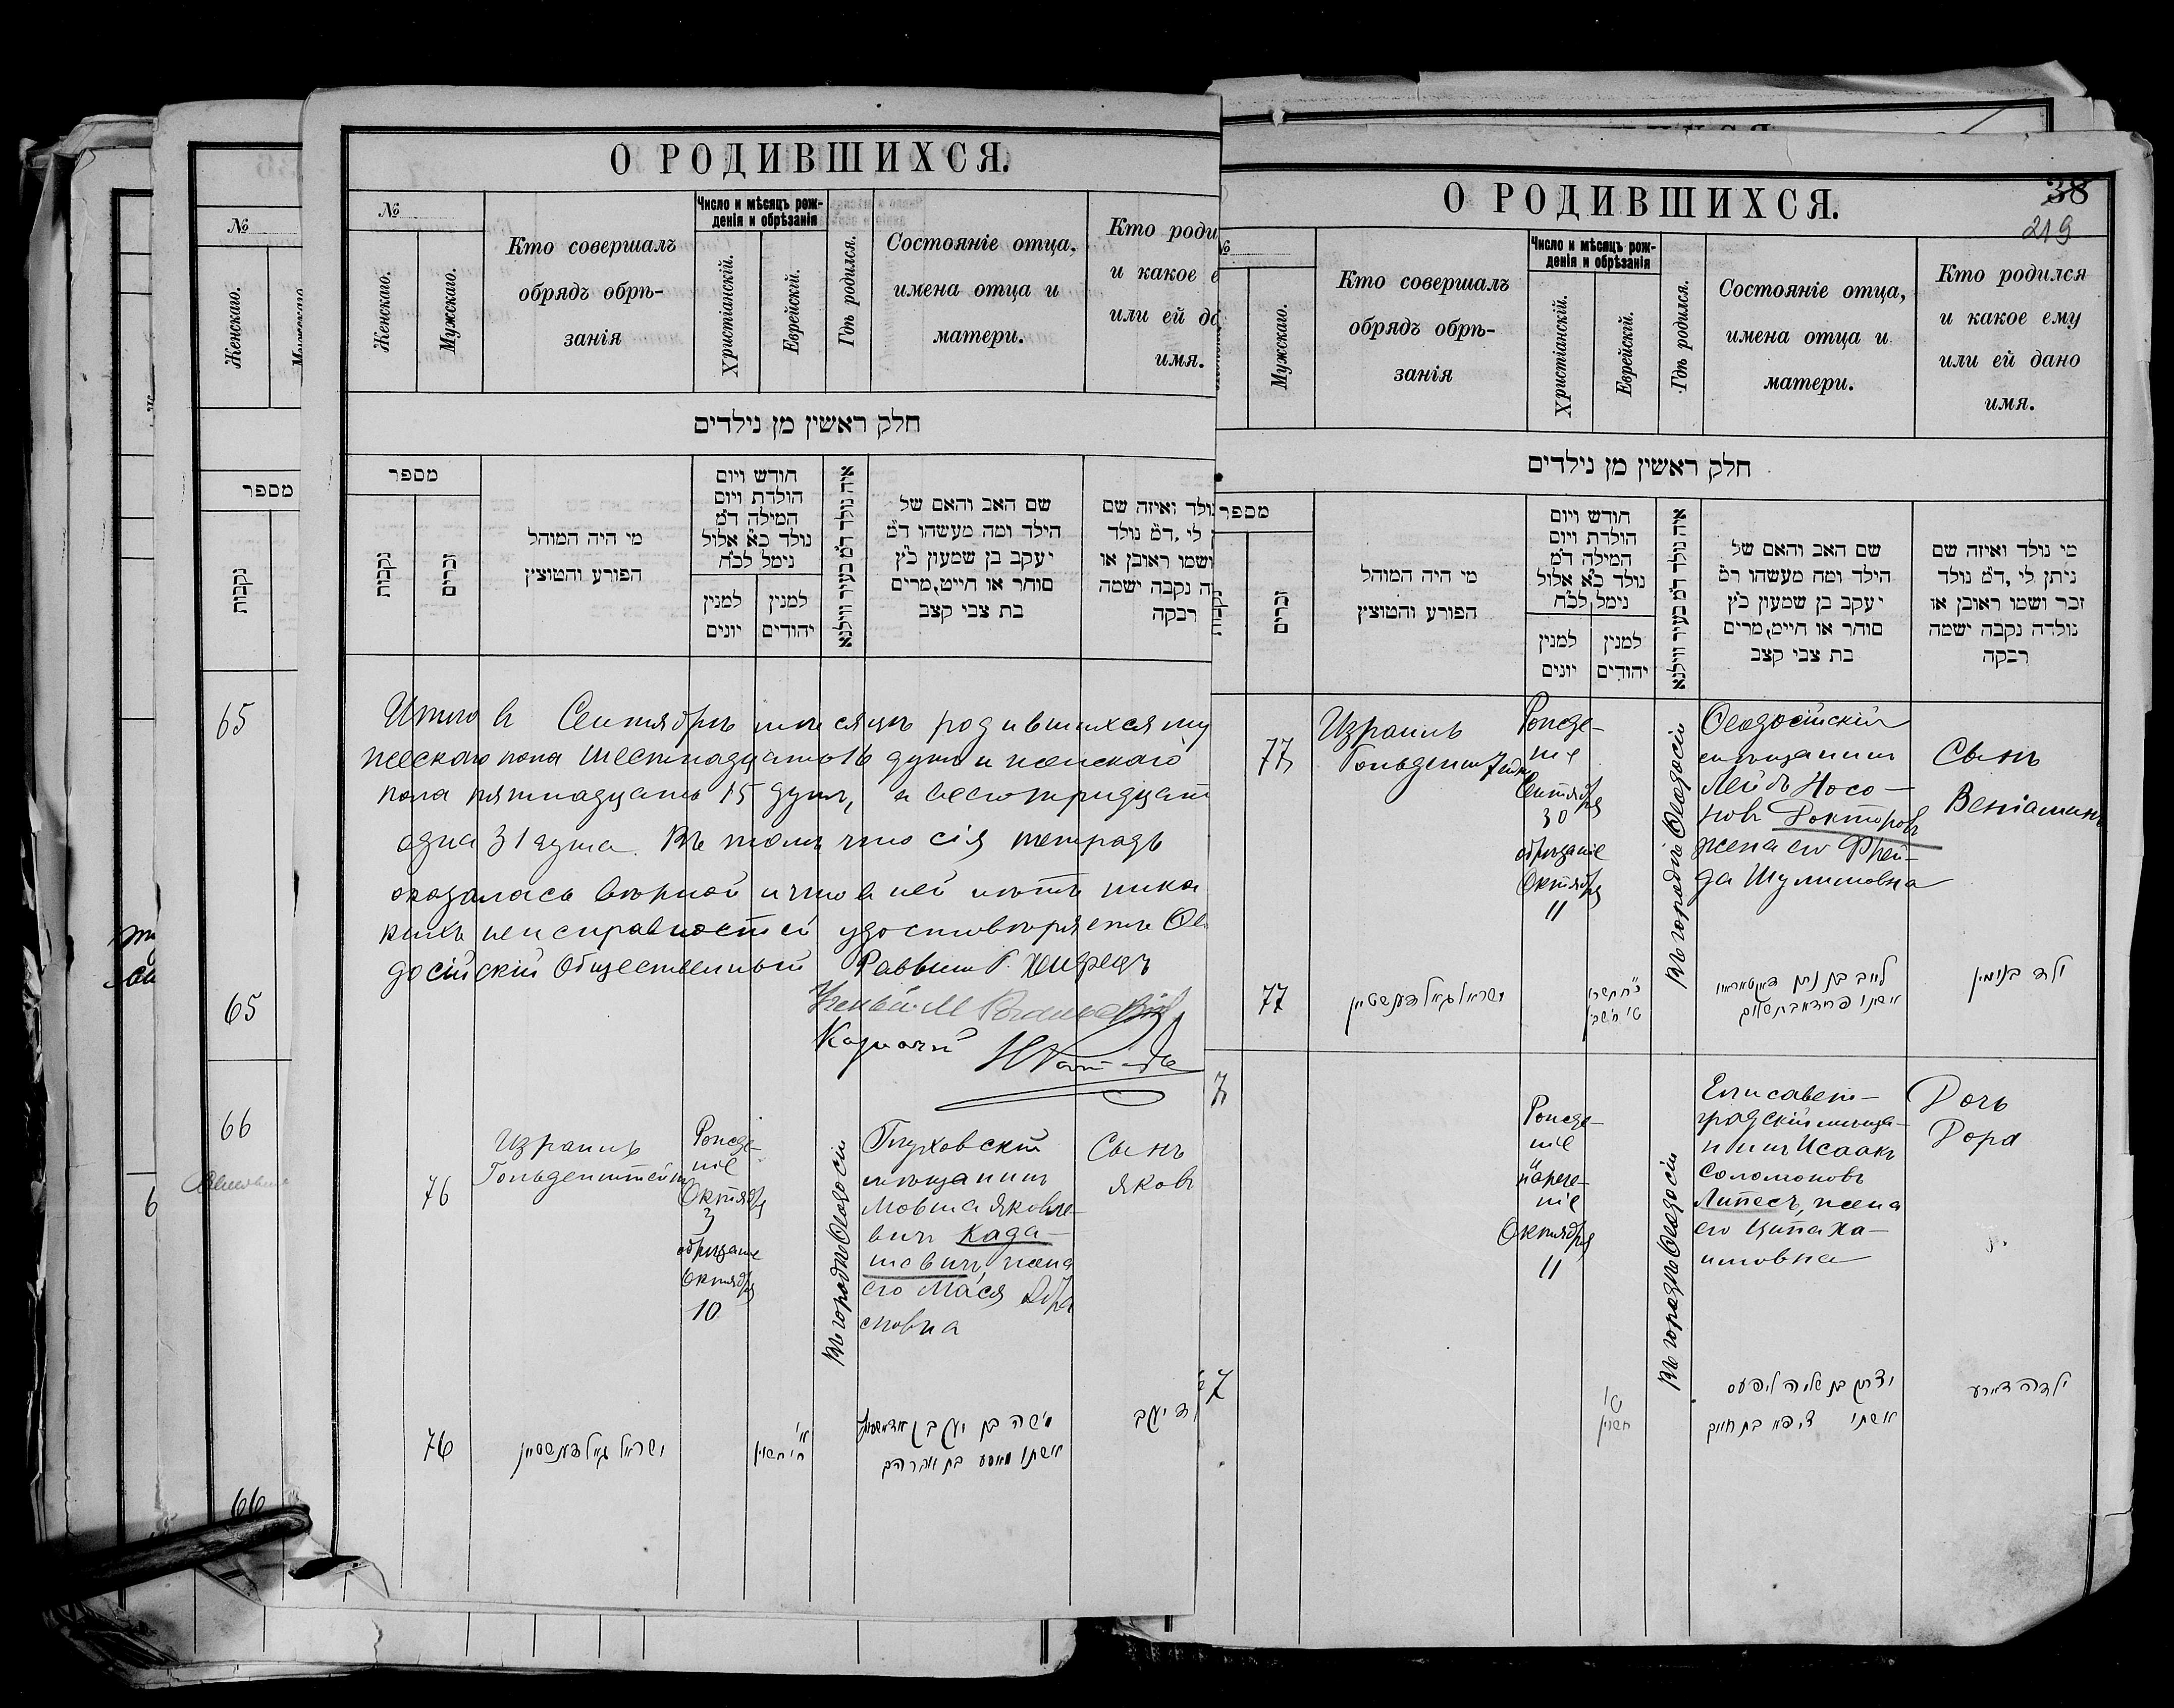 О РОДИВШИХСЯ.
№
Женскаго.
Мужскаго.
Кто совершалъ
обрядъ обрѣ-
занія
Число и мѣсяцъ рож-
денія и обрѣзанія
Христіанскій.
Еврейскій.
Гдѣ родился.
Состояніе отца,
имена отца и
матери.
Кто роди
и какое е
или ей да
имя.
חלק ראשין מן נילדים
מספר
נקבות
זכרים
מי היה המוהל
הפורע והמוצץ
חודש ויום
הולדת ויום
המילה ד״מ
נולד כ״א אלול
נימל לכ״ח
למנין
יונים
למנין
יהודים
איה נולד ד״מ בעיר ווילנא
שם האב והאם של
הילד ומה מעשהו ד״מ
יעקב בן שמעון כ״ץ
סוחר או חייט, מרים
בת צבי קצב
נולד ואיזה שם
לי, ד״מ נולד
ושמו ראובן או
ה נקבה ישמה
רבקה
Итого въ Сентябрѣ мѣсяцѣ родившихся му
жескаго пола шестнадцать 16 душъ и женскаго
пола пятнадцать 15 душъ, а всего тридцат
одна 31 душа. Въ томъ что сія тетрадь
оказалась вѣрной и что въ ней нѣтъ ника
кихъ неисправностей удостовѣряетъ Ѳео
досійскій Общественный Раввинъ
Ученый М
Казначей
76
Израиль
Гольденштейнъ
Рожде-
ніе
Октября
3
обрѣзаніе
Октября
10
Въ городѣ Ѳеодосіи
Глуховскій
мѣщанинъ
Мовша Яковле-
вичъ Када-
шевичъ, жена
его Мася Абра
мовна
Сынъ
Яковъ
76
ישראל גאלדענשטיין
אשתו מאסע בת אברהם
О РОДИВШИХСЯ.
38
219
№
Мужскаго.
Кто совершалъ
обрядъ обрѣ-
занія
Число и мѣсяцъ рож-
денія и обрѣзанія
Христіанскій.
Еврейскій.
Гдѣ родился.
Состояніе отца,
имена отца и
матери.
Кто родился
и какое ему
или ей дано
имя.
חלק ראשין מן נילדים
מספר
נקבות
זכרים
מי היה המוהל
הפורע והמוצץ
חודש ויום
הולדת ויום
המילה ד״מ
נולד כ״א אלול
נימל לכ״ח
למנין
יונים
למנין
יהודים
איה נולד ד״מ בעיר ווילנא
שם האב והאם של
הילד ומה מעשהו ד״מ
יעקב בן שמעון כ״ץ
סוהר או חייט, מרים
בת צבי קצב
מי נולד ואיזה שם
ניתן לי, ד״מ נולד
זכר ושמו ראובן או
נולדה נקבה ישמה
רבקה
77
Израиль
Гольденштейнъ
Рожде-
ніе
Сентября
30
обрѣзаніе
Октября
11
Въ городѣ Ѳеодосіи
Ѳеодосійскій
мѣщанинъ
Лейбъ Носо-
новъ Докторовъ
жена его Фрей-
да Шулимовна
Сынъ
Веніаминъ
77
ישראל גאלדענשטיין
ילד בנימין
7
Рожде-
ніе
и
нарече-
ніе
Октября
11
Въ городѣ Ѳеодосіи
Елисавет-
градскій мѣща-
нинъ Исаакъ
Соломоновъ
Липесъ, жена
его Ципа Ха-
имовна
Дочь
Дора
7
ט״ו
חשון
אשתו ציפא בת חיים
ילדה דורע
№
Женскаго.
מספר
נקבות
65
65
66
66
6